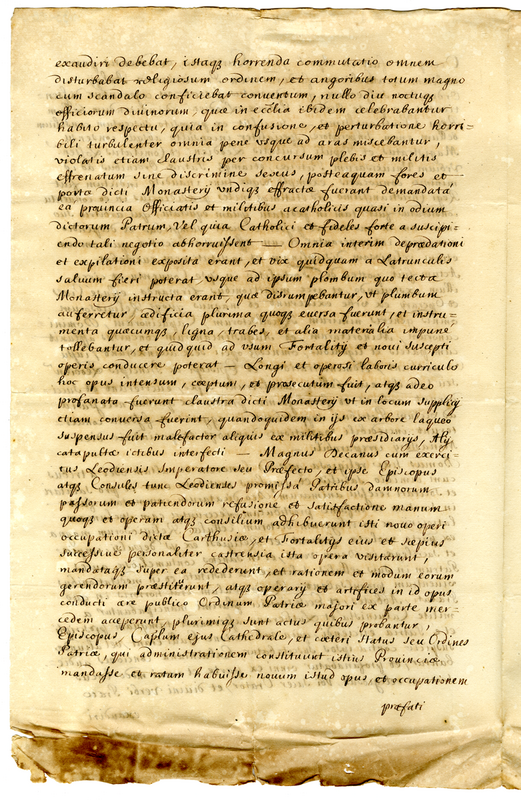 exaudiri debebat, istaqz horrenda commutatio omnem
disturbabat religiosum ordinem, et angoribus totum magno
cum scandalo conficiebat conventum, nullo diu noctuqz
officiorum divinorum, quæ in ecclia ibidem celebrabantur
habito respectu, quia in confusione, et perturbatione horri=
bili turbulenter omnia pene vsque ad aras miscebantur,
violatis etiam claustris per concursum plebis et militis
effrenatum sine discrimine sexus, posteaquam fores et
porta dicti Monasterij vndiqz effractæ fuerant demandata
ea provincia Officiatis et militibus acatholicis quasi in odium
dictorum Patrum, Vel quia Catholici et fideles forte a suscipi=
endo tali negotio abhorruissent — Omnia interim depradationi
et expilationi exposita erant, et vix quidquam a Latrunculis
salvum fieri poterat vsque ad ipsum plombum quo tecta
Monasterij instructa erant, quæ disrumpebantur, vt plumbum
auferretur, ædificia plurima quoqz eversa fuerunt, et instru=
menta quæcumqz, ligna, trabes, et alia materialia impune
tollebantur, et quidquid ad vsum Fortalitij et novi suscepti
operis conducere poterat — Longi et operosi laboris curriculo
hoc opus intensum, cæptum, et prosecutum fuit, atqz adeo
profanata fuerunt claustra dicti Monasterij vt in locum supplicij
etiam conversa fuerint, quandoquidem in ijs ex arbore laqueo
suspensus fuit malefactor aliquis ex militibus præsidiarijs, Alij
catapultæ ictibus interfecti — Magnus Decanus cum exerci=
tus Leodiensis Imperatore seu Præfecto, et ipse Episcopus
atqz Consules tunc Leodienses promissa Patribus damnorum
passorum et patiendorum refusione et satisfactione manum
quoqz et operam atqz consilium adhibuerunt isti novo operi
occupationi dictæ Carthusiæ, et Fortalitij eius et sæpius
successive personaliter castrensia ista opera visitarunt,
mandataqz super ea redederunt, et rationem et modum eorum
gerendorum præstiterunt, atqz operarij et artifices in id opus
conducti ære publico Ordinum Patriæ majori ex parte mer=
cedem acceperunt, plurimiqz sunt actus quibus probantur,
Episcopus, Caplum ejus Cathedrale, et cæteri Status seu Ordines
Patriæ, qui administrationem constituunt istius Provinciæ
mandasse et ratam habuisse novum istud opus, et occupationem
præfati